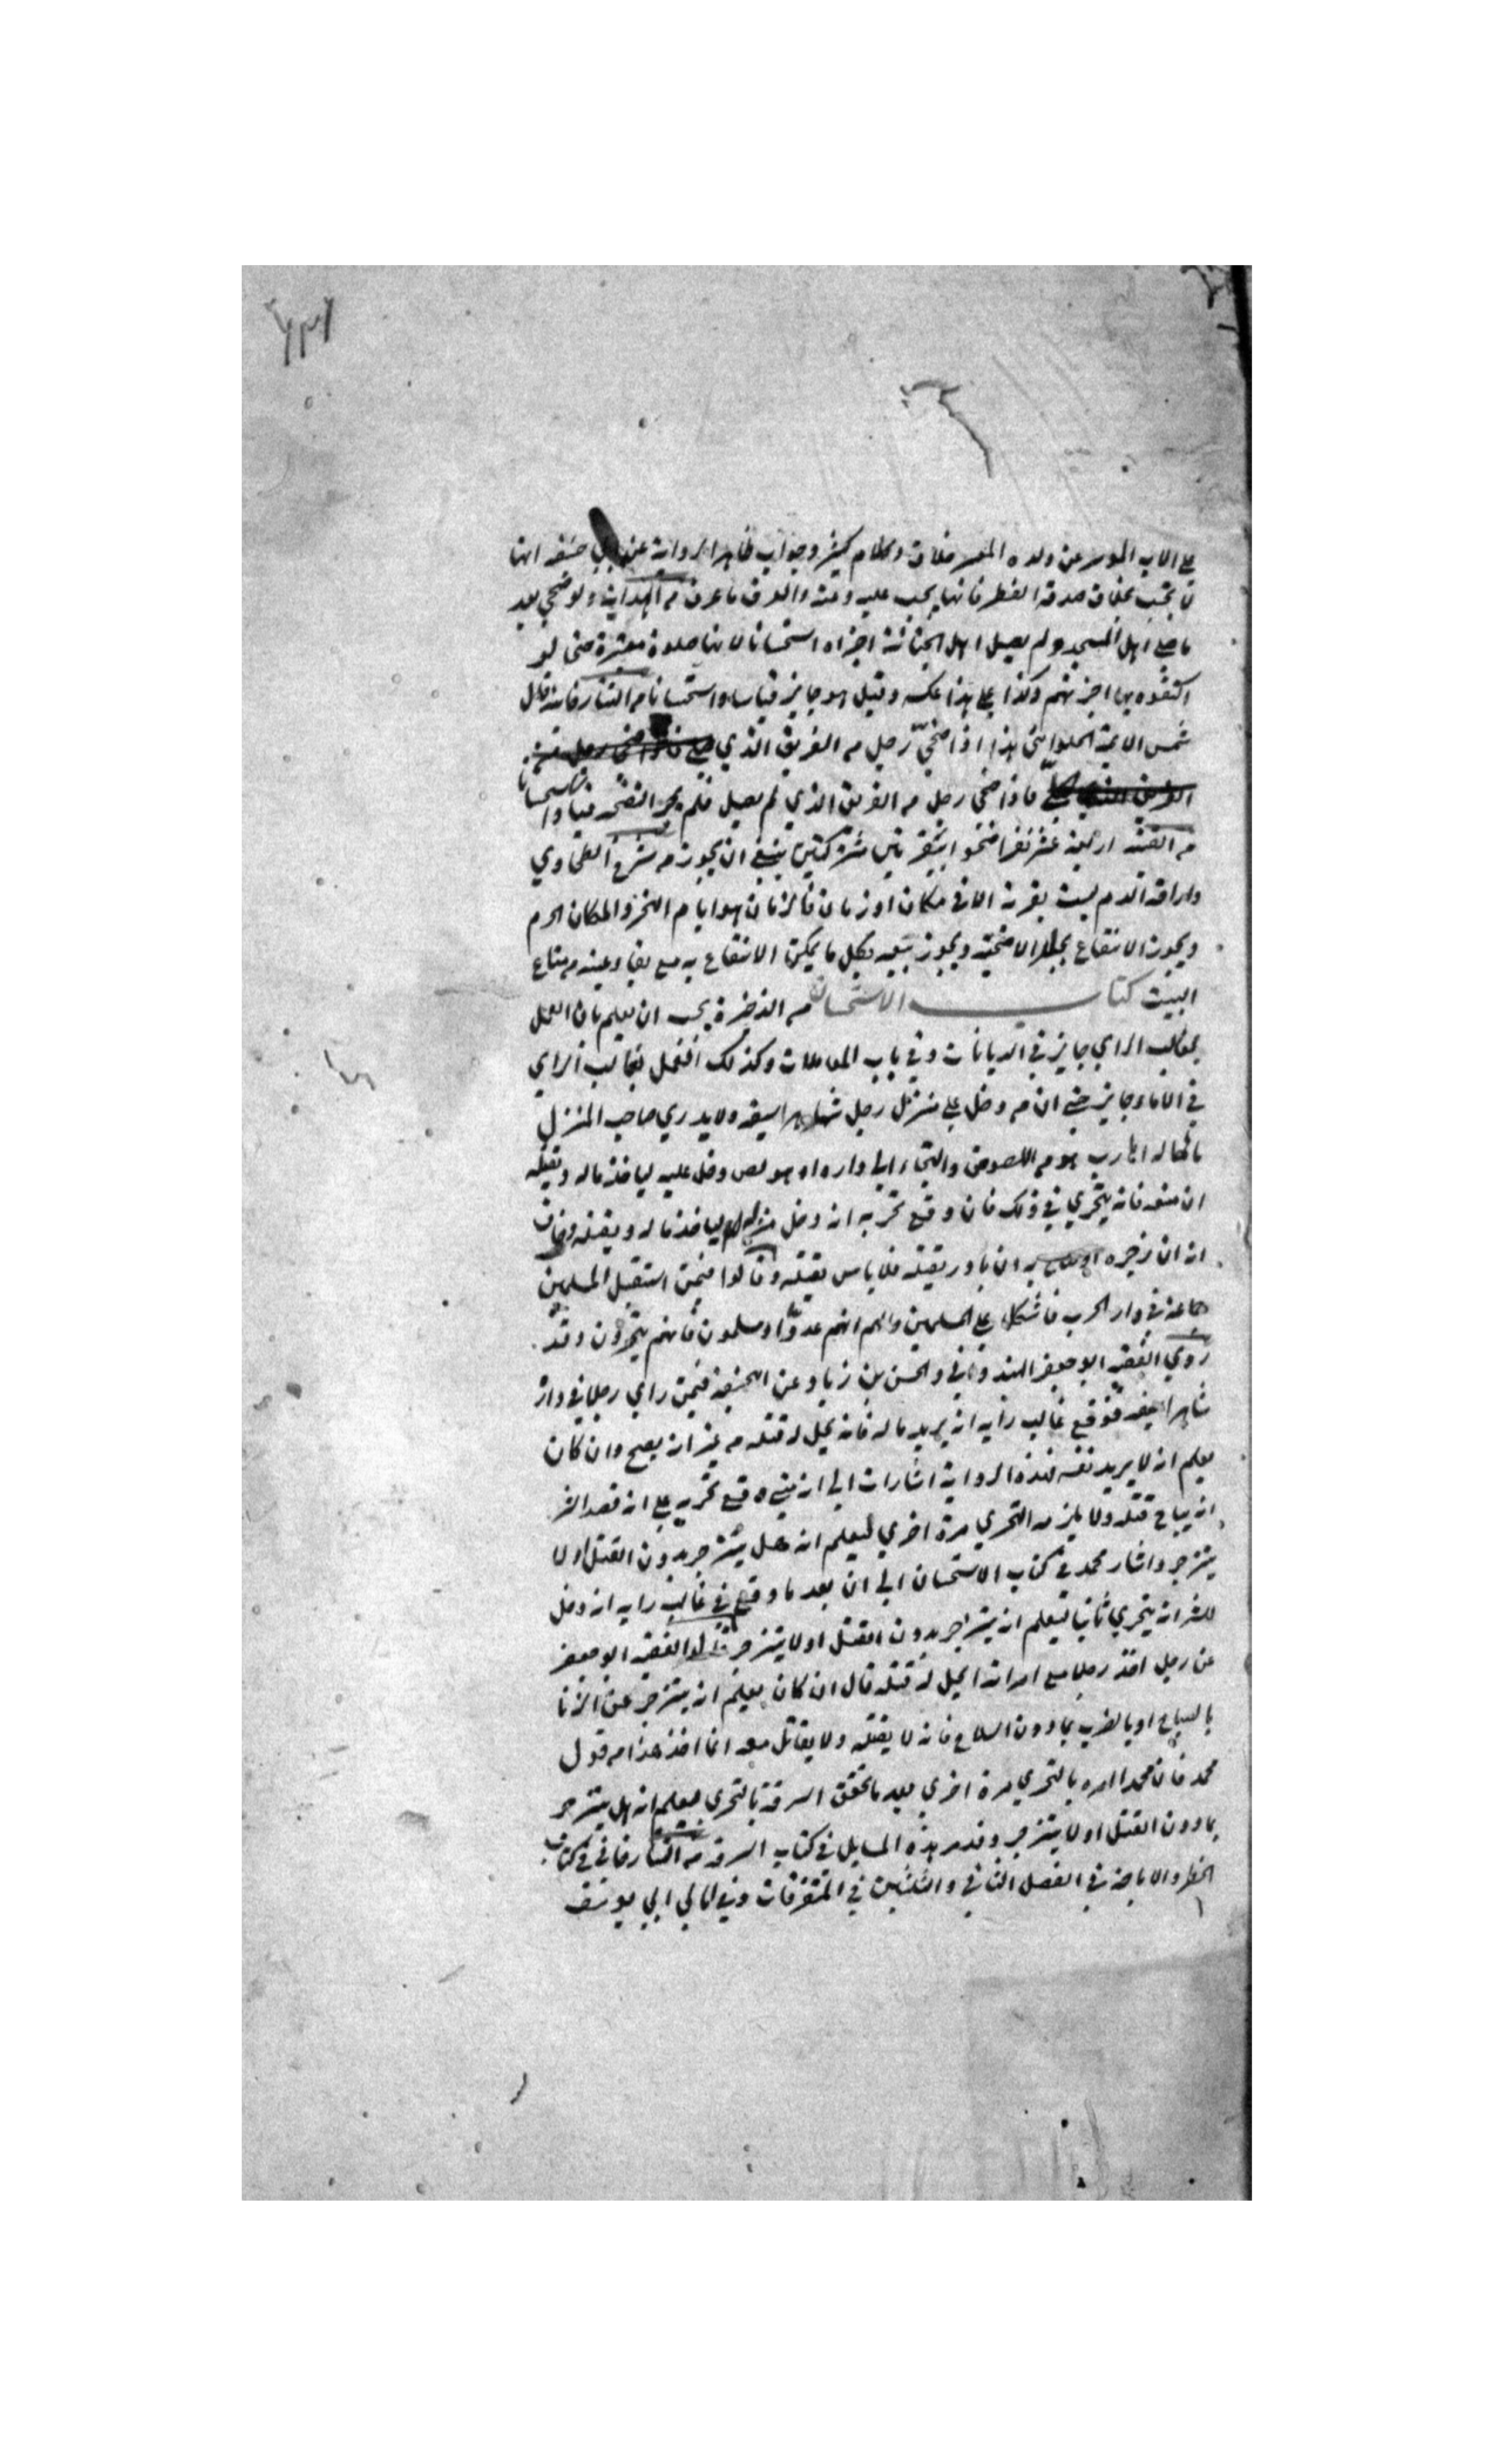 على الاب الموسر عن ولده المعسر خلاف وكلام كثير وجواب ظاهر الرواية عن ابي حنيفه انها
لا تجب بخلاف صدقة الفطر فانها يجب عليه وعنه والفرق ما عرف من الهداية ولو ضحى بعد
ما صلى اهل المسجد ولم يصل اهل الجبانة اجزاه استحسانا لانها صلوة معتبرة حتى لو
اكتفوه بها اجزتهم وكذا على هذا عكسه وقيل هو جايز قياسا واستحسانا من التتارخانيه قال
شمس الايمة الحلواني هذا اذا ضحى رجل من الفريق الذي صلى
فاذا ضحى رجل من الفريق الذي لم يصل فلم يجز التضحيه قياسا واستحسانا
من القنيه اربعة عشر نفرا ضحوا ببقرتين مشتركتين ينبغي ان يجوز من شرح الطحاوي
واراقة الدم ليست بقربة الا في مكان او زمان فالزمان هو ايام النحر والمكان الحرم
ويجوز الانتفاع بجلد الاضحية ويجوز بيعه بكل ما يمكن الانتفاع به مع بقاء عينه من متاع
البيت كتاب الاستحسان من الذخيرة يجب ان يعلم بان العمل
بغالب الراي جايز في الديانات وفي باب المعاملات وكذلك العمل بغالب الراي
في الدماء جايز حتى ان من دخل على منزل رجل شاهرا سيفه ولا يدري صاحب المنزل
ما حاله اهارب هو من اللصوص والتجاء الى داره او هو لص دخل عليه لياخذ ماله ويقتله
ان منعه فانه يتحرى في ذلك فان وقع تحريه انه دخل منزله لياخذ ماله ويقتله وخاف
انه ان زجره او صاح به ان يبادر بقتله فلا باس بقتله وقالوا فيمن استقبل المسلمين
جماعة في دار الحرب فاشكل على المسلمين حالهم انهم عدو او مسلمون فانهم يتحرون وقد
روي الفقيه ابو جعفر الهندواني والحسن بن زياد عن ابي حنيفه فيمن راى رجلا في داره
شاهرا سيفه فوقع غالب رايه انه يريد ماله فانه يحل له قتله من غير ان يصيح وان كان
يعلم انه لا يريد نفسه فهذه الرواية اشارات الى انه متى وقع تحريه على انه قصد الشر
انه يباح قتله ولا يلزمه التحري مرة اخرى ليعلم انه هل ينزجر بدون القتل او لا
ينزجر واشار محمد في كتاب الاستحسان الى ان بعد ما وقع في غالب رايه انه دخل
للشر انه يتحرى ثانيا ليعلم انه ينزجر بدون القتل او لا ينزجر الفقيه ابو جعفر
عن رجل اخذ رجلا مع امراته ايحل له قتله قال ان كان يعلم انه ينزجر عن الزنا
بالصياح او بالضرب بما دون السلاح فانه لا يقتله ولا يقاتل معه انما اخذ هذا من قول
محمد فان محمدا امره بالتحري مرة اخرى بعد ما تحقق السرقة بالتحري ليعلم انه هل ينزجر
بما دون القتل او لا ينزجر وقد مر هذه المسايل في كتاب السرقه من التتارخاني في كتاب
الحظر والاباحة في الفصل الثاني والثلثين في المتفرقات وفي امالي ابي يوسف